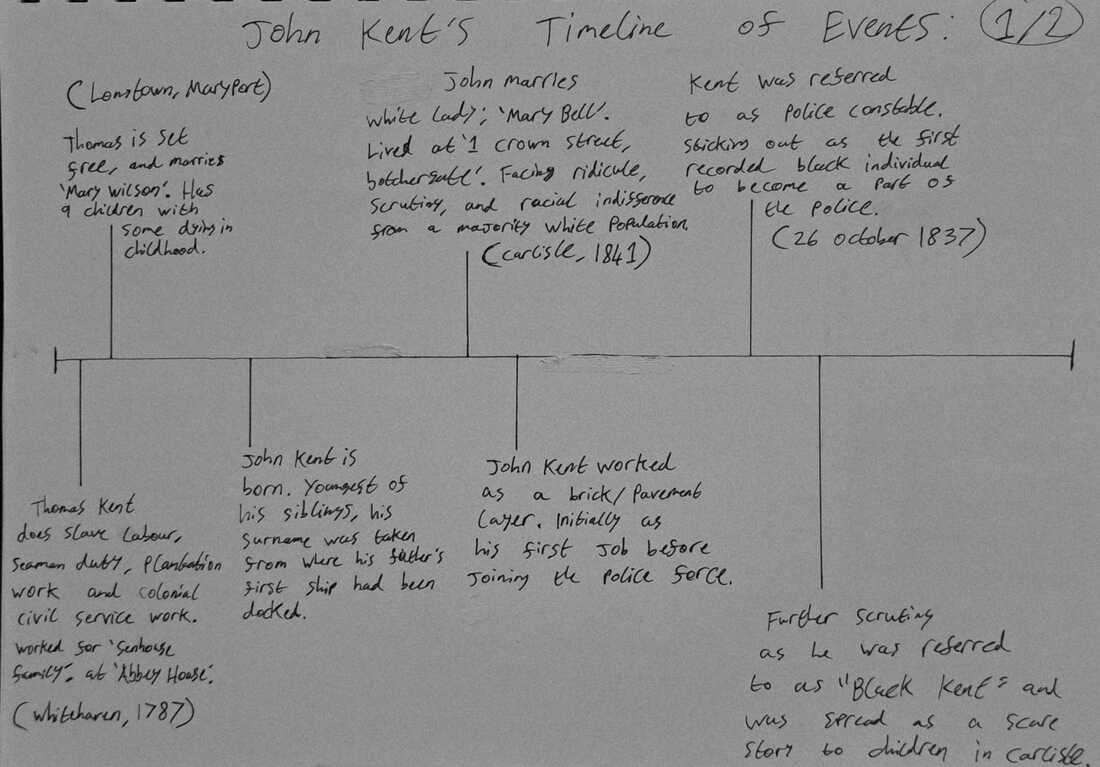 John Kent's Timeline of Events: 1/2
(Lonstown, Maryport)
Thomas is set
free, and marries
'Mary Wilson'. Has
9 children with
some dying in
childhood.
John marries
white lady; 'Mary Bell'.
Lived at '1 crown street,
botchergate'. Facing ridicule,
scrutiny, and racial indifference
from a majority white population.
(Carlisle, 1841)
Kent was referred
to as police constable.
sticking out as the first
recorded black individual
to become a part of
the police.
(26 October 1837)
Thomas Kent
does slave labour,
seaman duty, plantation
work and colonial
civil service work.
worked for 'Senhouse
family'. at 'Abbey House'.
(Whitehaven, 1787)
John Kent is
born. Youngest of
his siblings, his
surname was taken
from where his father's
first ship had been
docked.
John Kent worked
as a brick/pavement
layer. Initially as
his first job before
joining the police force.
Further scrutiny
as he was referred
to as "Black Kent" and
was spread as a scare
story to children in Carlisle.